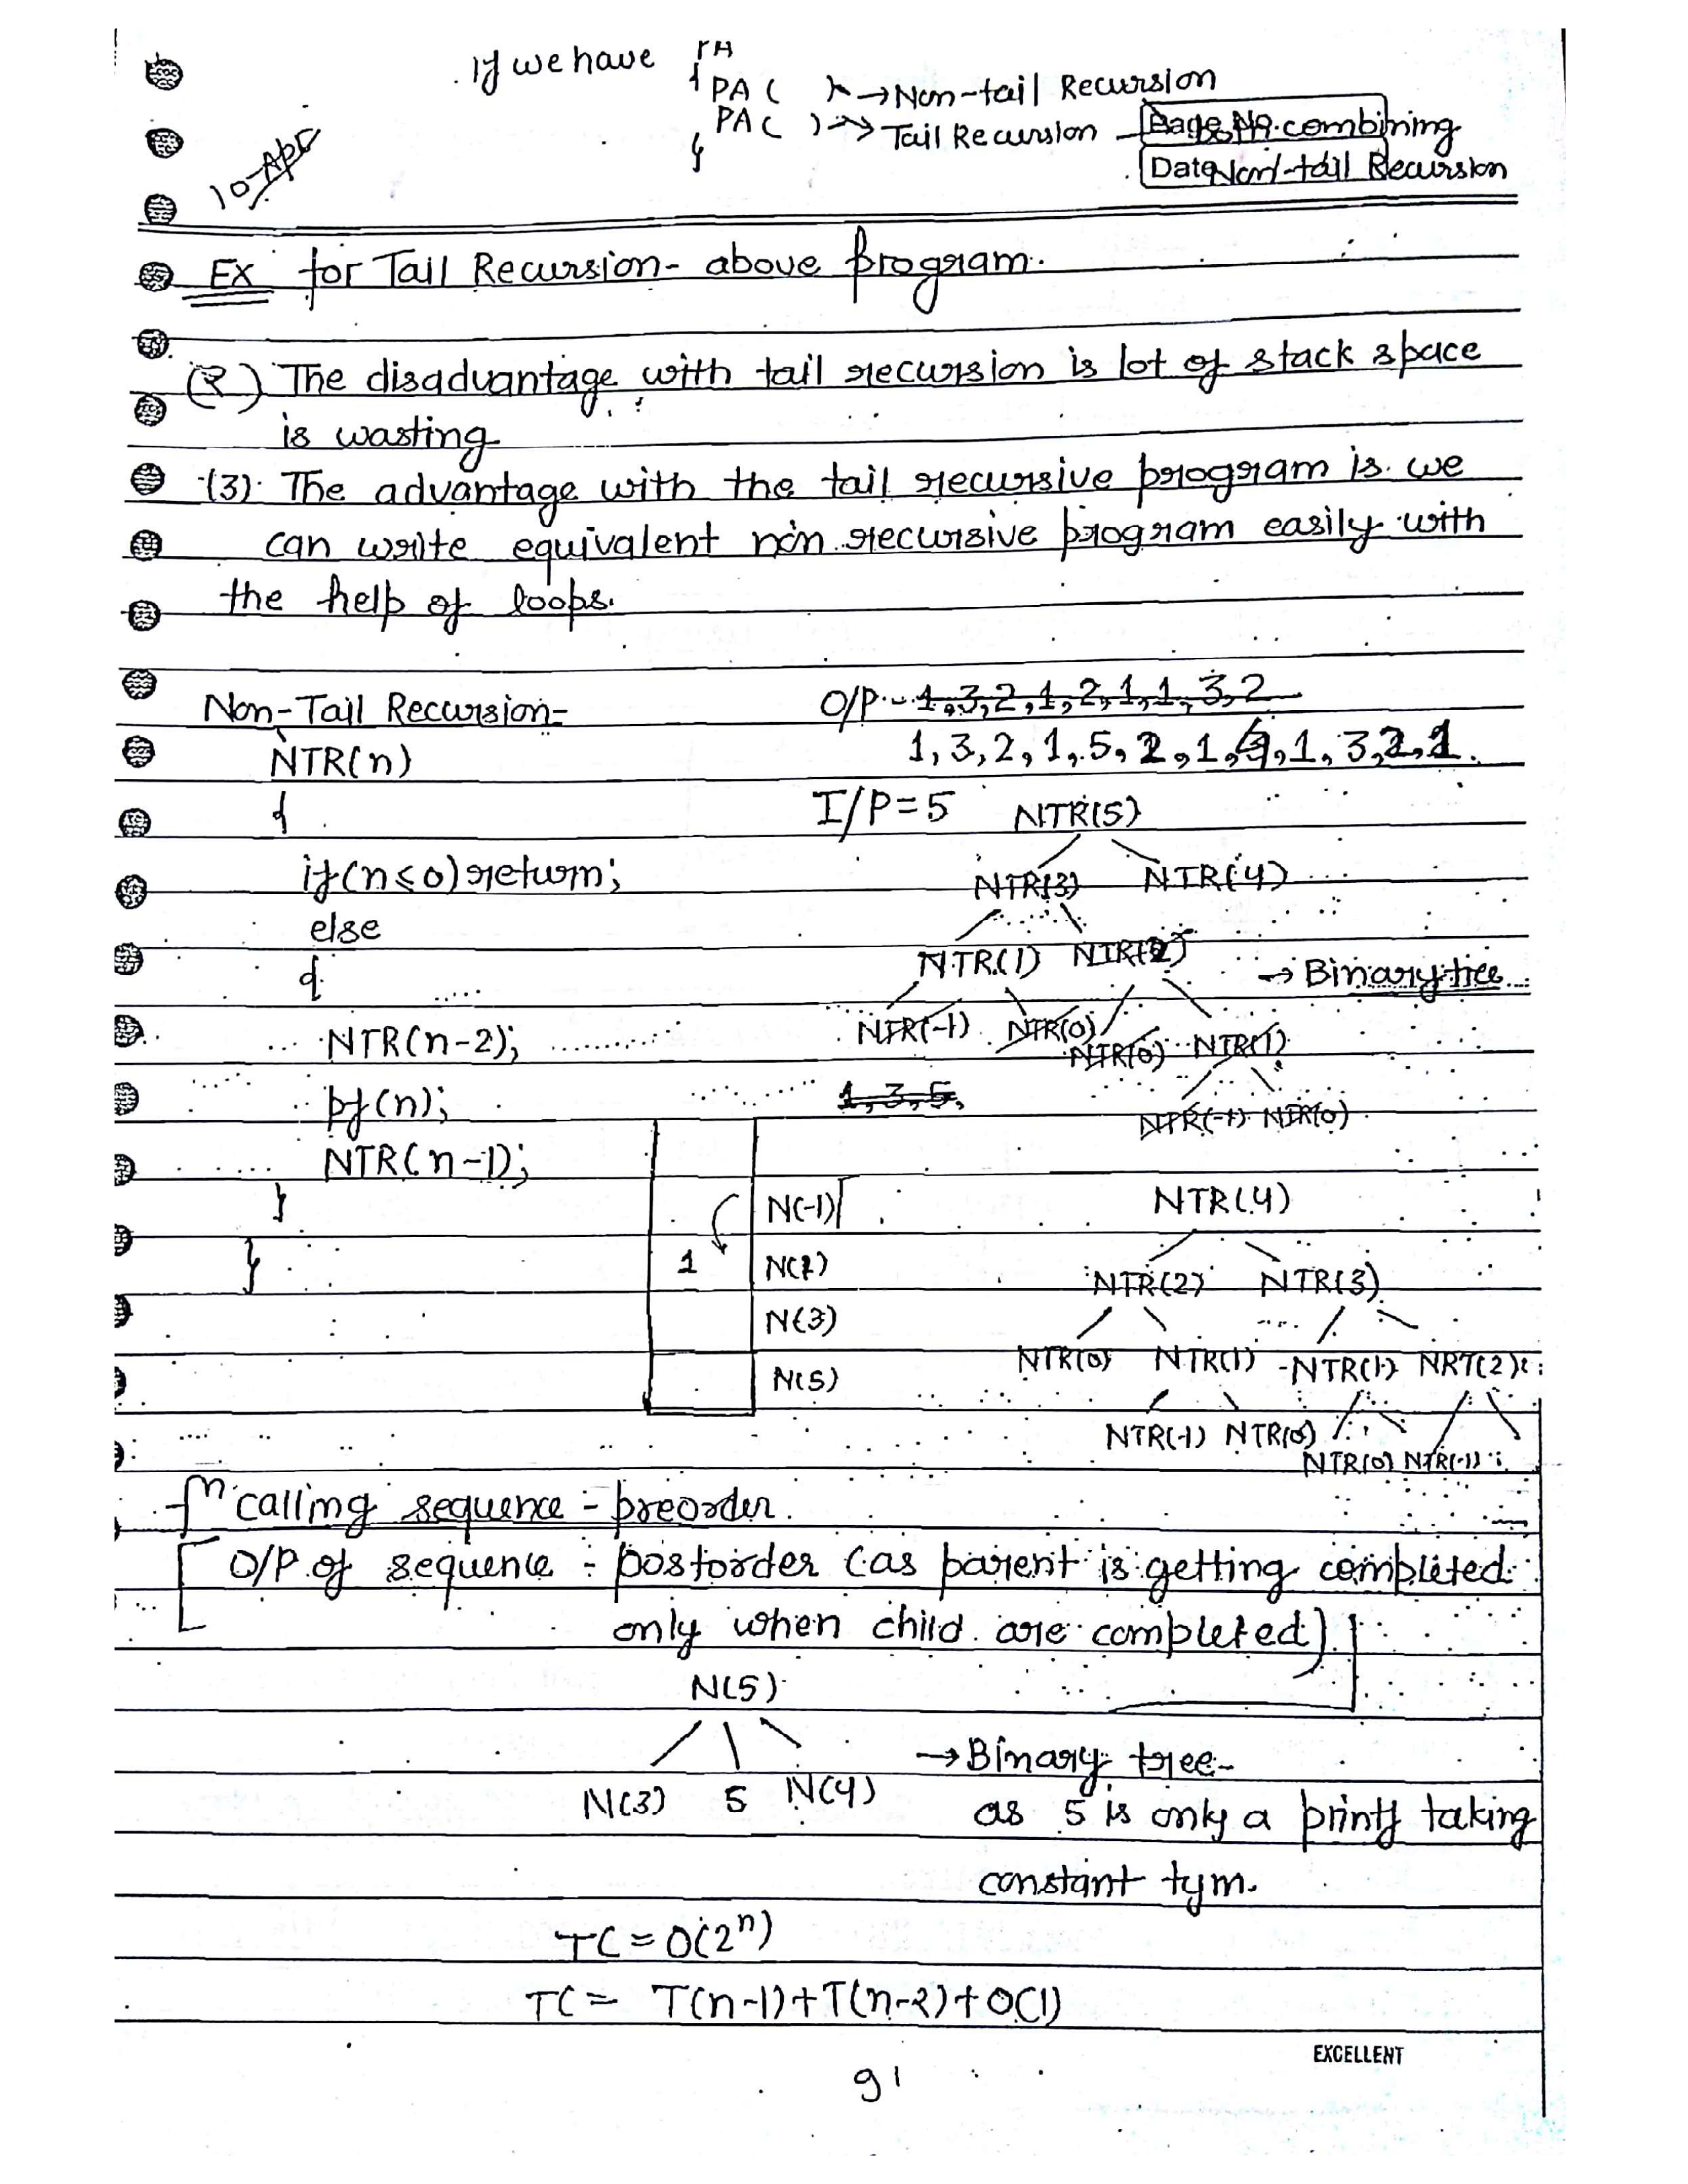 If we have PA
{ PA ( ) → Non-tail Recursion
PA ( ) → Tail Recursion combining
}
Page No.
Date Non-tail Recursion
10-Apr
EX for Tail Recursion- above program.
(2) The disadvantage with tail recursion is lot of stack space
is wasting
(3) The advantage with the tail recursive program is we
can write equivalent non recursive program easily with
the help of loops.
Non-Tail Recursion-
O/P - 1,3,2,1,2,1,1,3,2
1,3,2,1,5,2,1,4,1,3,2,1.
NTR(n)
{
I/P=5 NTR(5)
if(n≤0)return;
NTR(3) NTR(4)
else
{
NTR(1) NTR(2)
→ Binary tree
NTR(n-2);
NTR(-1) NTR(0) NTR(0) NTR(1)
pf(n);
1,3,5,
NTR(-1) NTR(0)
NTR(n-1);
}
}
N(-1)
1 N(1)
N(3)
N(5)
NTR(4)
NTR(2) NTR(3)
NTR(0) NTR(1) NTR(1) NRT(2)
NTR(-1) NTR(0)
NTR(0) NTR(-1)
fn calling sequence - preorder.
O/P of sequence - postorder (as parent is getting completed
only when child are completed)
N(5)
N(3) 5 N(4)
→ Binary tree-
as 5 is only a printf taking
constant tym.
TC = O(2ⁿ)
TC = T(n-1)+T(n-2)+O(1)
EXCELLENT
91